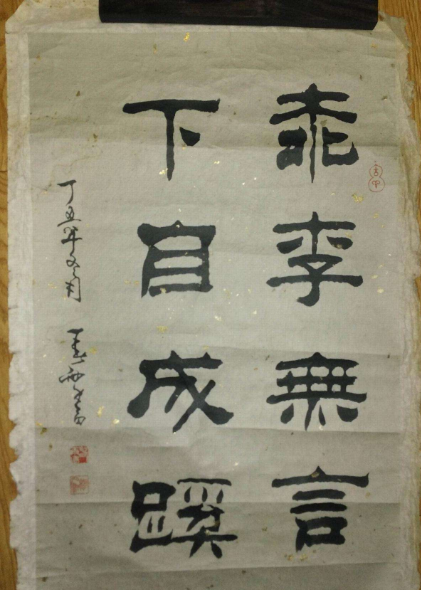 桃李無言
下自成蹊
丁丑年冬月